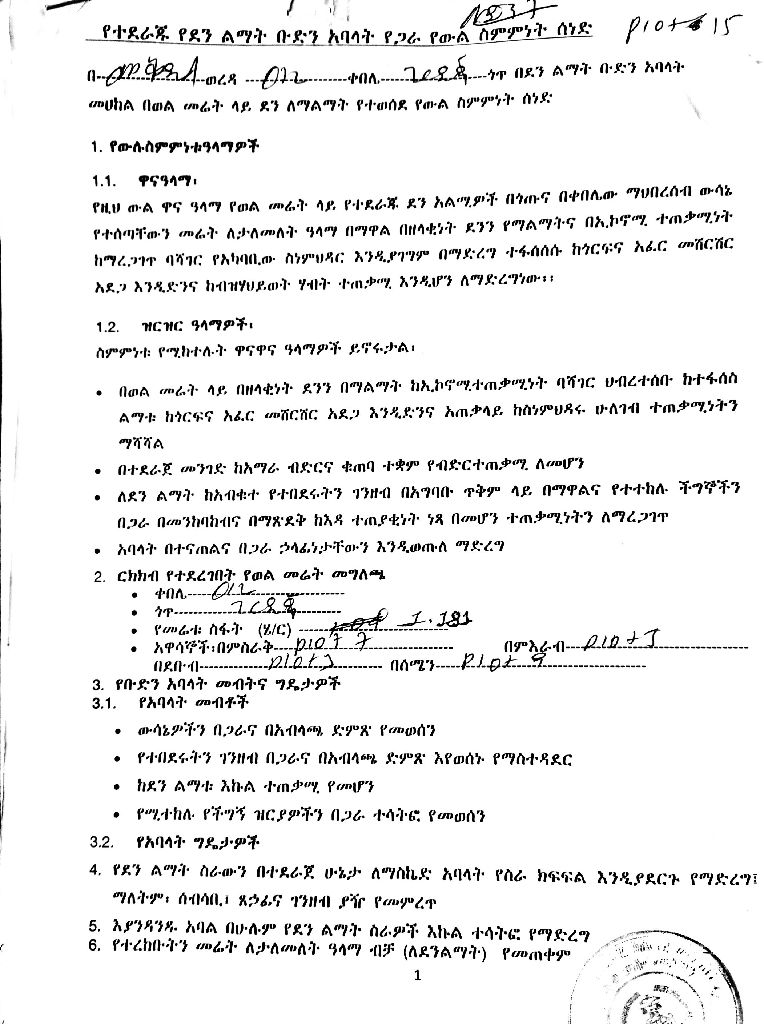 የተደራጁ የደን ልማት ቡድን አባላት የጋራ የውል ስምምነት ሰነድ plot 15
በ ወረዳ 012 ቀበሌ ጎጥ በደን ልማት ቡድን አባላት
መሀከል በወል መሬት ላይ ደን ለማልማት የተወሰደ የውል ስምምነት ሰነድ
1. የውሉስምምነቱዓላማዎች
1.1. ዋናዓላማ፡
የዚህ ውል ዋና ዓላማ የወል መሬት ላይ የተደራጁ ደን አልሚዎች በጎጡና በቀበሌው ማህበረሰብ ውሳኔ
የተሰጣቸውን መሬት ለታለመለት ዓላማ በማዋል በዘላቂነት ደንን የማልማትና በኢኮኖሚ ተጠቃሚነት
ከማረጋገጥ ባሻገር የአካባቢው ስነምህዳር እንዲያገግም በማድረግ ተፋሰሰሱ ከጎርፍና አፈር መሸርሸር
አደጋ እንዲድንና ከብዝሃህይወት ሃብት ተጠቃሚ እንዲሆን ለማድረግነው፡፡
1.2. ዝርዝር ዓላማዎች፡
ስምምነቱ የሚከተሉት ዋናዋና ዓላማዎች ይኖሩታል፡
• በወል መሬት ላይ በዘላቂነት ደንን በማልማት ከኢኮኖሚተጠቃሚነት ባሻገር ህብረተሰቡ ከተፋሰስ
ልማቱ ከጎርፍና አፈር መሸርሸር አደጋ እንዲድንና አጠቃላይ ከስነምህዳሩ ሁለገብ ተጠቃሚነትን
ማሻሻል
• በተደራጀ መንገድ ከአማራ ብድርና ቁጠባ ተቋም የብድርተጠቃሚ ለመሆን
• ለደን ልማት ከአብቁተ የተበደሩትን ገንዘብ በአግባቡ ጥቅም ላይ በማዋልና የተተከሉ ችግኞችን
በጋራ በመንከባከብና በማጽደቅ ከእዳ ተጠያቂነት ነጻ በመሆን ተጠቃሚነትን ለማረጋገጥ
• አባላት በተናጠልና በጋራ ኃላፊነታቸውን እንዲወጡለ ማድረግ
2. ርክክብ የተደረገበት የወል መሬት መግለጫ
• ቀበሌ 012
• ጎጥ
• የመሬቱ ስፋት (ሄ/ር) 1.181
• አዋሳኞች፡በምስራቅ plot 7 በምእራብ plot
በደቡብ plot በሰሜን plot 9
3. የቡድን አባላት መብትና ግዴታዎች
3.1. የአባላት መብቶች
• ውሳኔዎችን በጋራና በአብላጫ ድምጽ የመወሰን
• የተበደሩትን ገንዘብ በጋራና በአብላጫ ድምጽ እየወሰኑ የማስተዳደር
• ከደን ልማቱ እኩል ተጠቃሚ የመሆን
• የሚተከሉ የችግኝ ዝርያዎችን በጋራ ተሳትፎ የመወሰን
3.2. የአባላት ግዴታዎች
4. የደን ልማት ስራውን በተደራጀ ሁኔታ ለማስኬድ አባላት የስራ ክፍፍል እንዲያደርጉ የማድረግ፤
ማለትም፡ ሰብሳቢ፣ ጸኃፊና ገንዘብ ያዥ የመምረጥ
5. እያንዳንዱ አባል በሁሉም የደን ልማት ስራዎች እኩል ተሳትፎ የማድረግ
6. የተረከቡትን መሬት ለታለመለት ዓላማ ብቻ (ለደንልማት) የመጠቀም
1